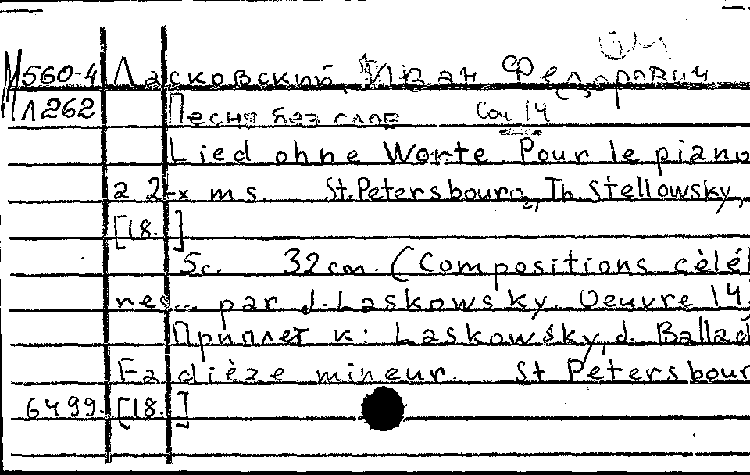 М560-4 Ласковский, Иван Федорович
Л262 Песня без слов Соч 14
Lied ohne Worte. Pour le piano
a 2-x ms. St.Petersbourg, Th. Stellowsky,
[18. ]
5с. 32 cm. (Compositions célé
nes... par J. Laskowsky. Oeuvre 14
Приплет к: Laskowsky, J. Ballad
Fa dièze mineur. St Petersbour
6499. [18. ]